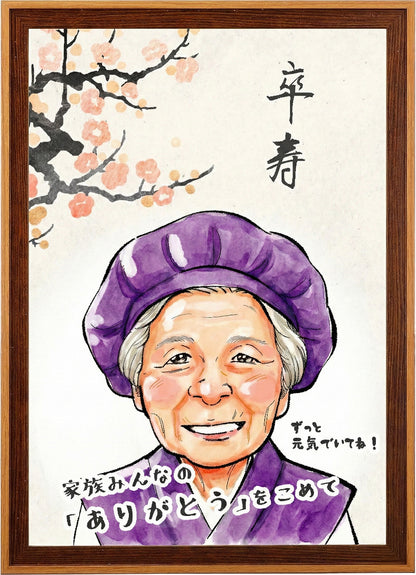 卒寿
ずっと
元気でいてね！
家族みんなの
「ありがとう」をこめて